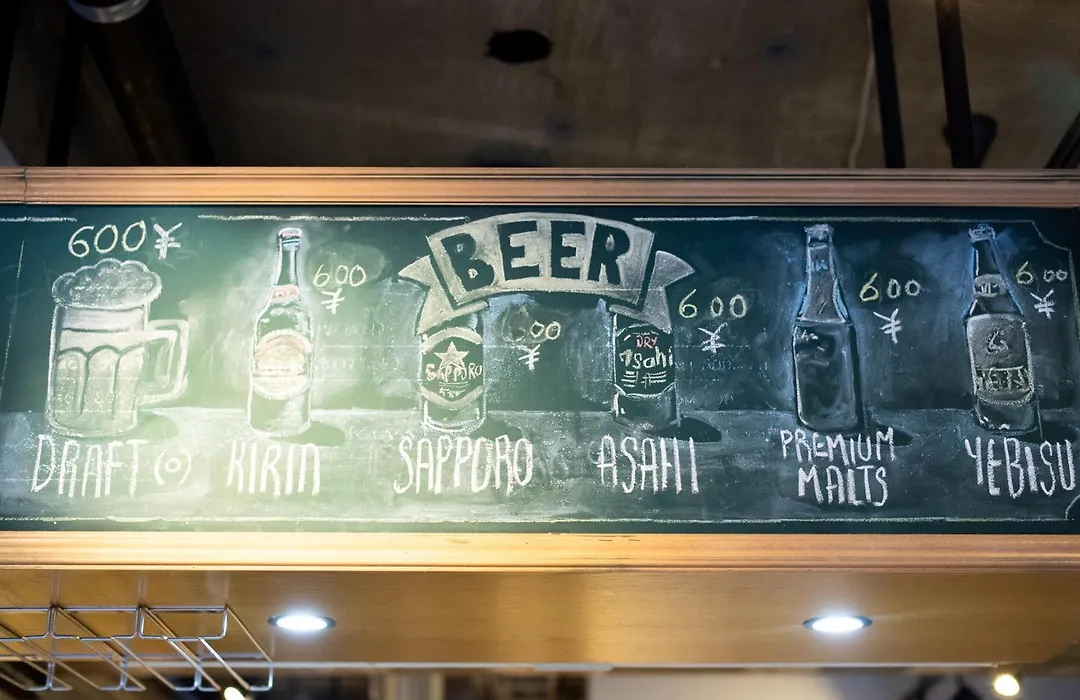 BEER
600 ¥
DRAFT (O)
600
¥
KIRIN
600
¥
SAPPORO
SAPPORO
600
¥
DRY
Asahi
ASAHI
600
¥
PREMIUM
MALTS
600
¥
YEBISU